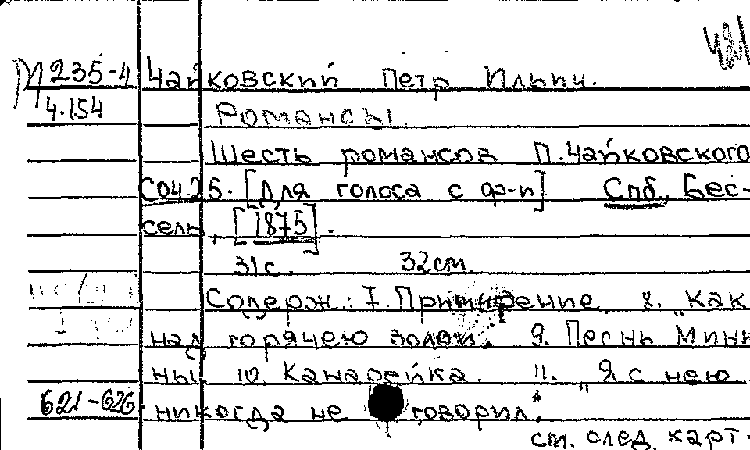 М 235-4 Чайковский Петр Ильич.
4.154 Романсы.
Шесть романсов П. Чайковского
Соч 25. [Для голоса с ф-п] Спб, Бес-
сель, [1875].
31 с. 32 см.
Содерж.: I. Примирение. 8. „Как
над горячею золой". 9. Песнь Минь
ны 10. Канарейка. 11. „Я с нею
621-626 никогда не говорил".
см. след. карт.